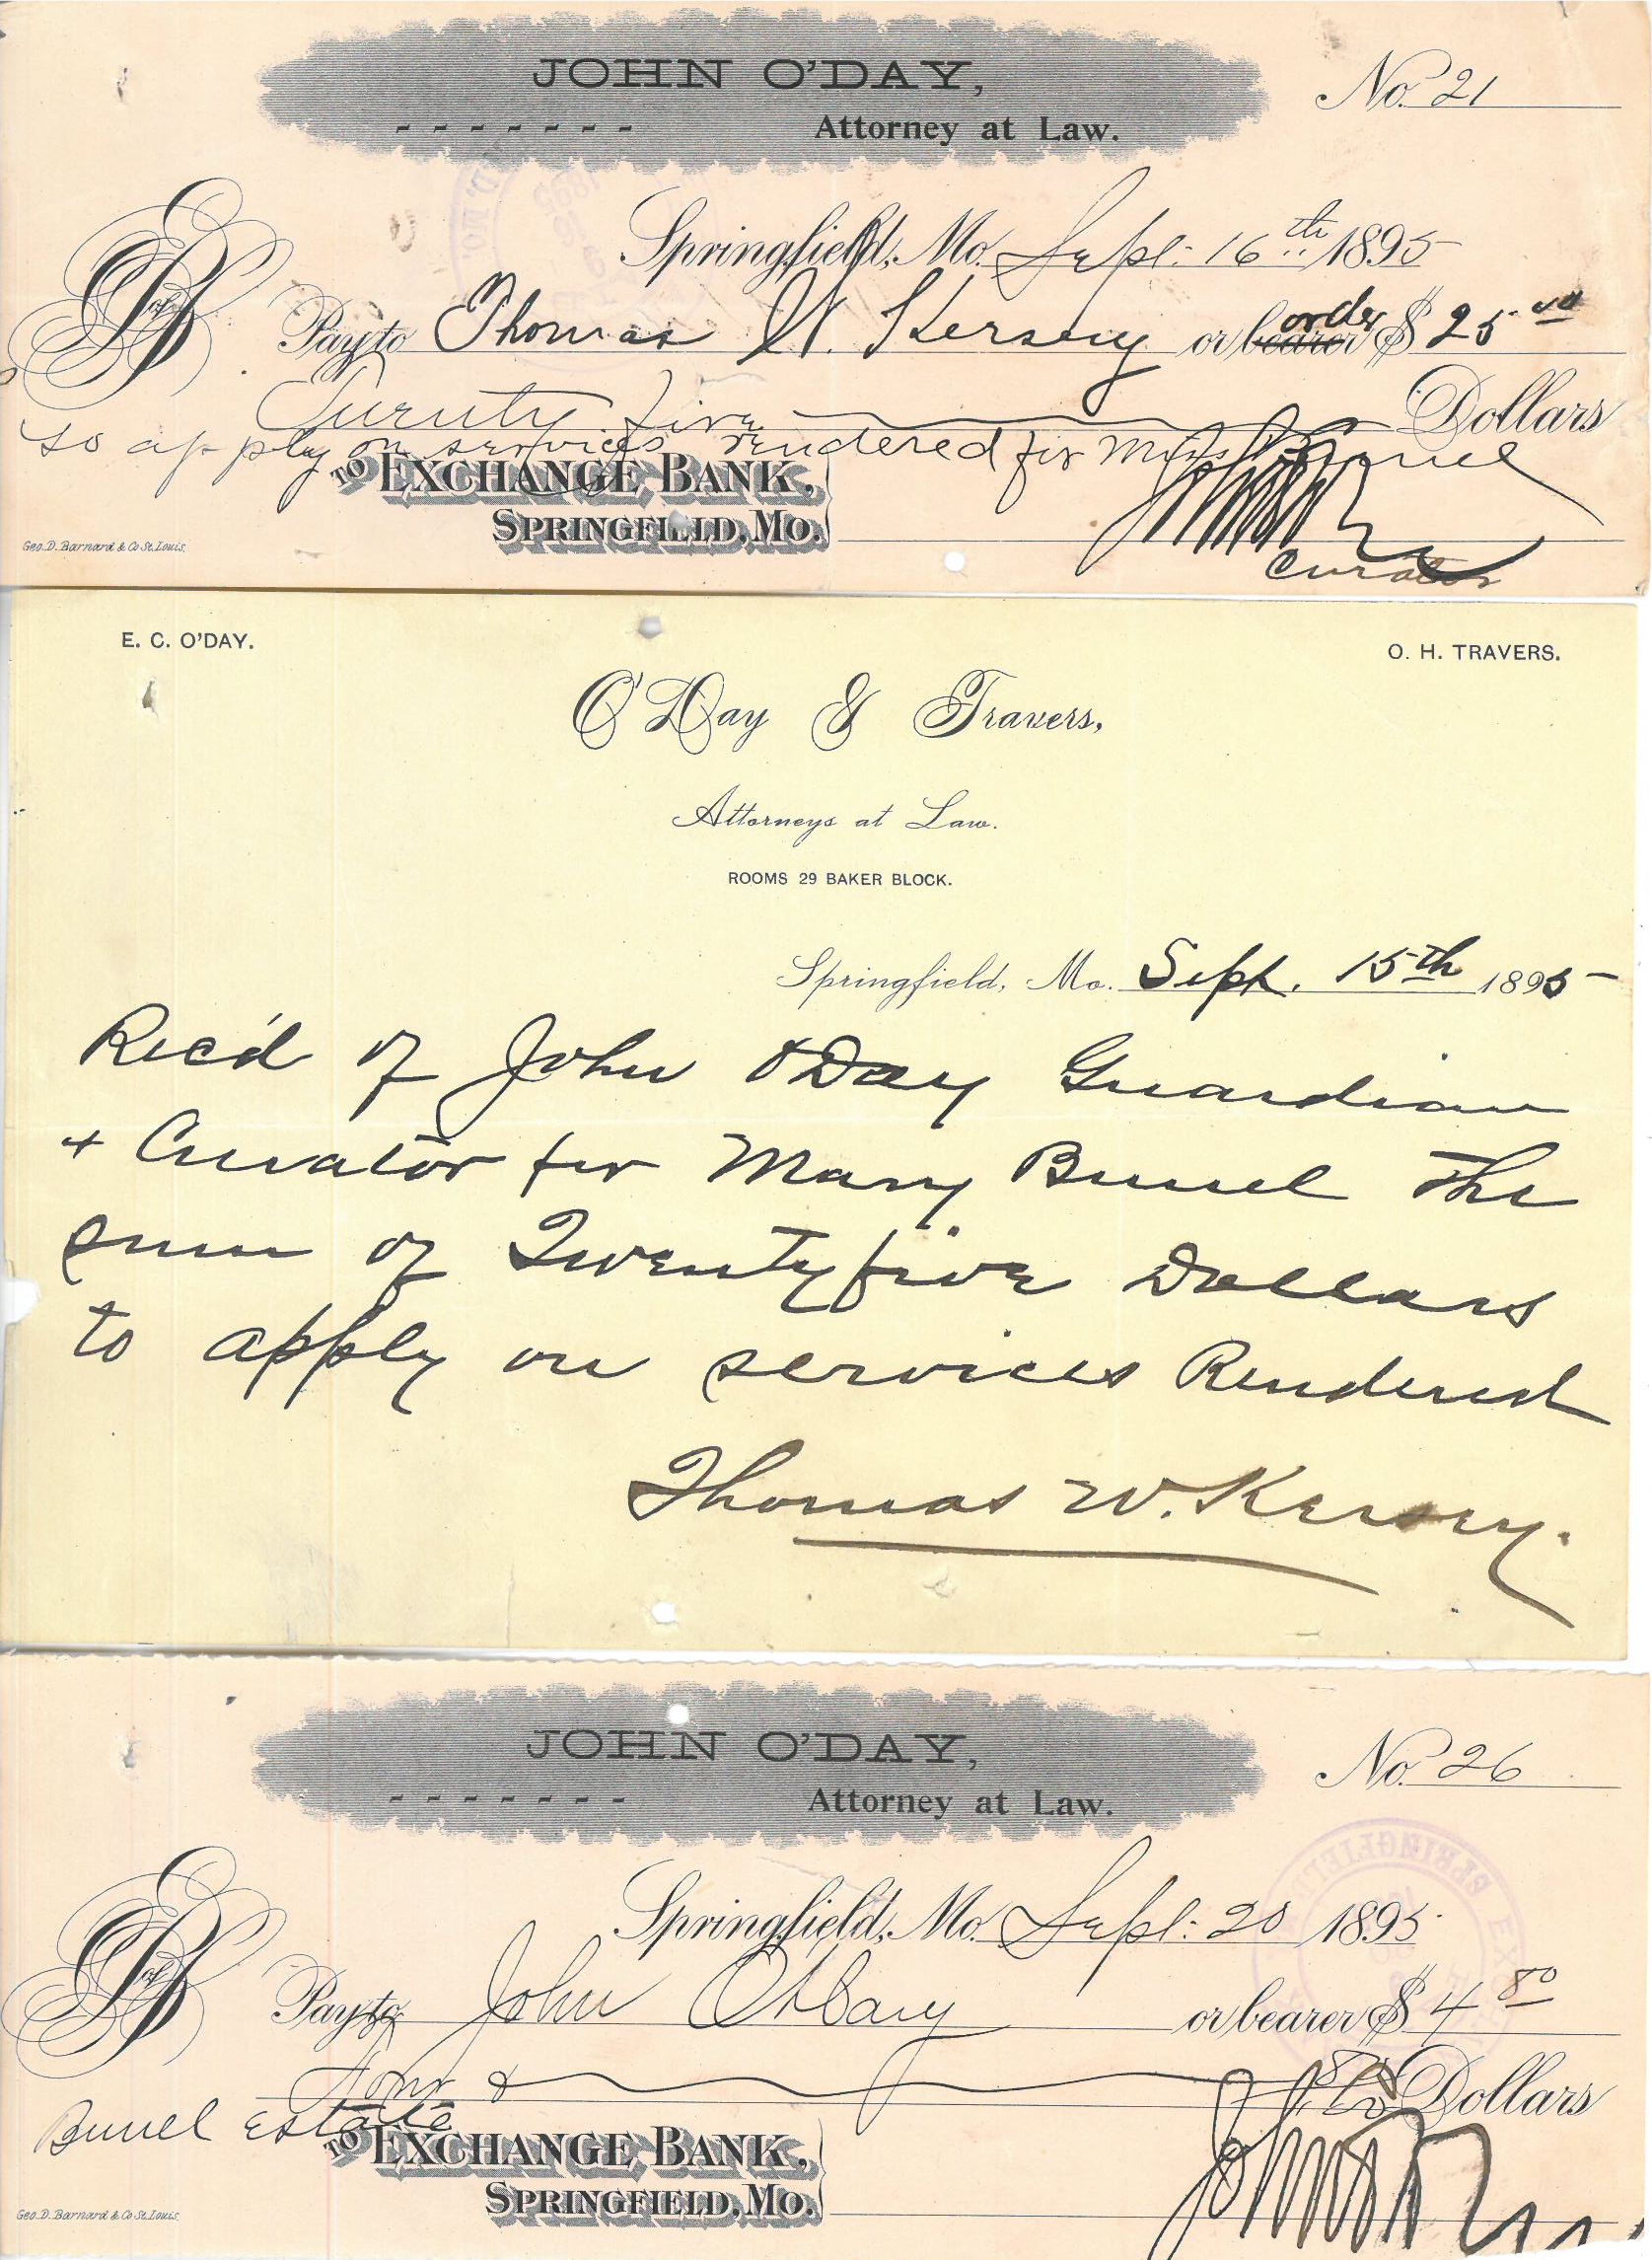 JOHN O'DAY,
Attorney at Law.
No. 21
Springfield, Mo. Sept: 16th 1895
Pay to Thomas W. Kersey or bearer order $ 25 00
Twenty five Dollars
to apply on services rendered for
TO EXCHANGE BANK,
SPRINGFIELD, MO.
Geo. D. Barnard & Co St. Louis.
Curator
E. C. O'DAY.
O. H. TRAVERS.
O'Day & Travers,
Attorneys at Law.
ROOMS 29 BAKER BLOCK.
Springfield, Mo. Sept. 15th 1895
Rec'd of John O'Day Guardian
+ Curator for Mary Bunel The
sum of Twenty five Dollars
to apply on services Rendered
Thomas W. Kersey.
JOHN O'DAY,
Attorney at Law.
No. 26
Springfield, Mo. Sept: 20 1895
Pay to John O'Day or bearer $ 4 80
Four & Dollars
Bunel Estate
TO EXCHANGE BANK,
SPRINGFIELD, MO.
Geo. D. Barnard & Co St. Louis.